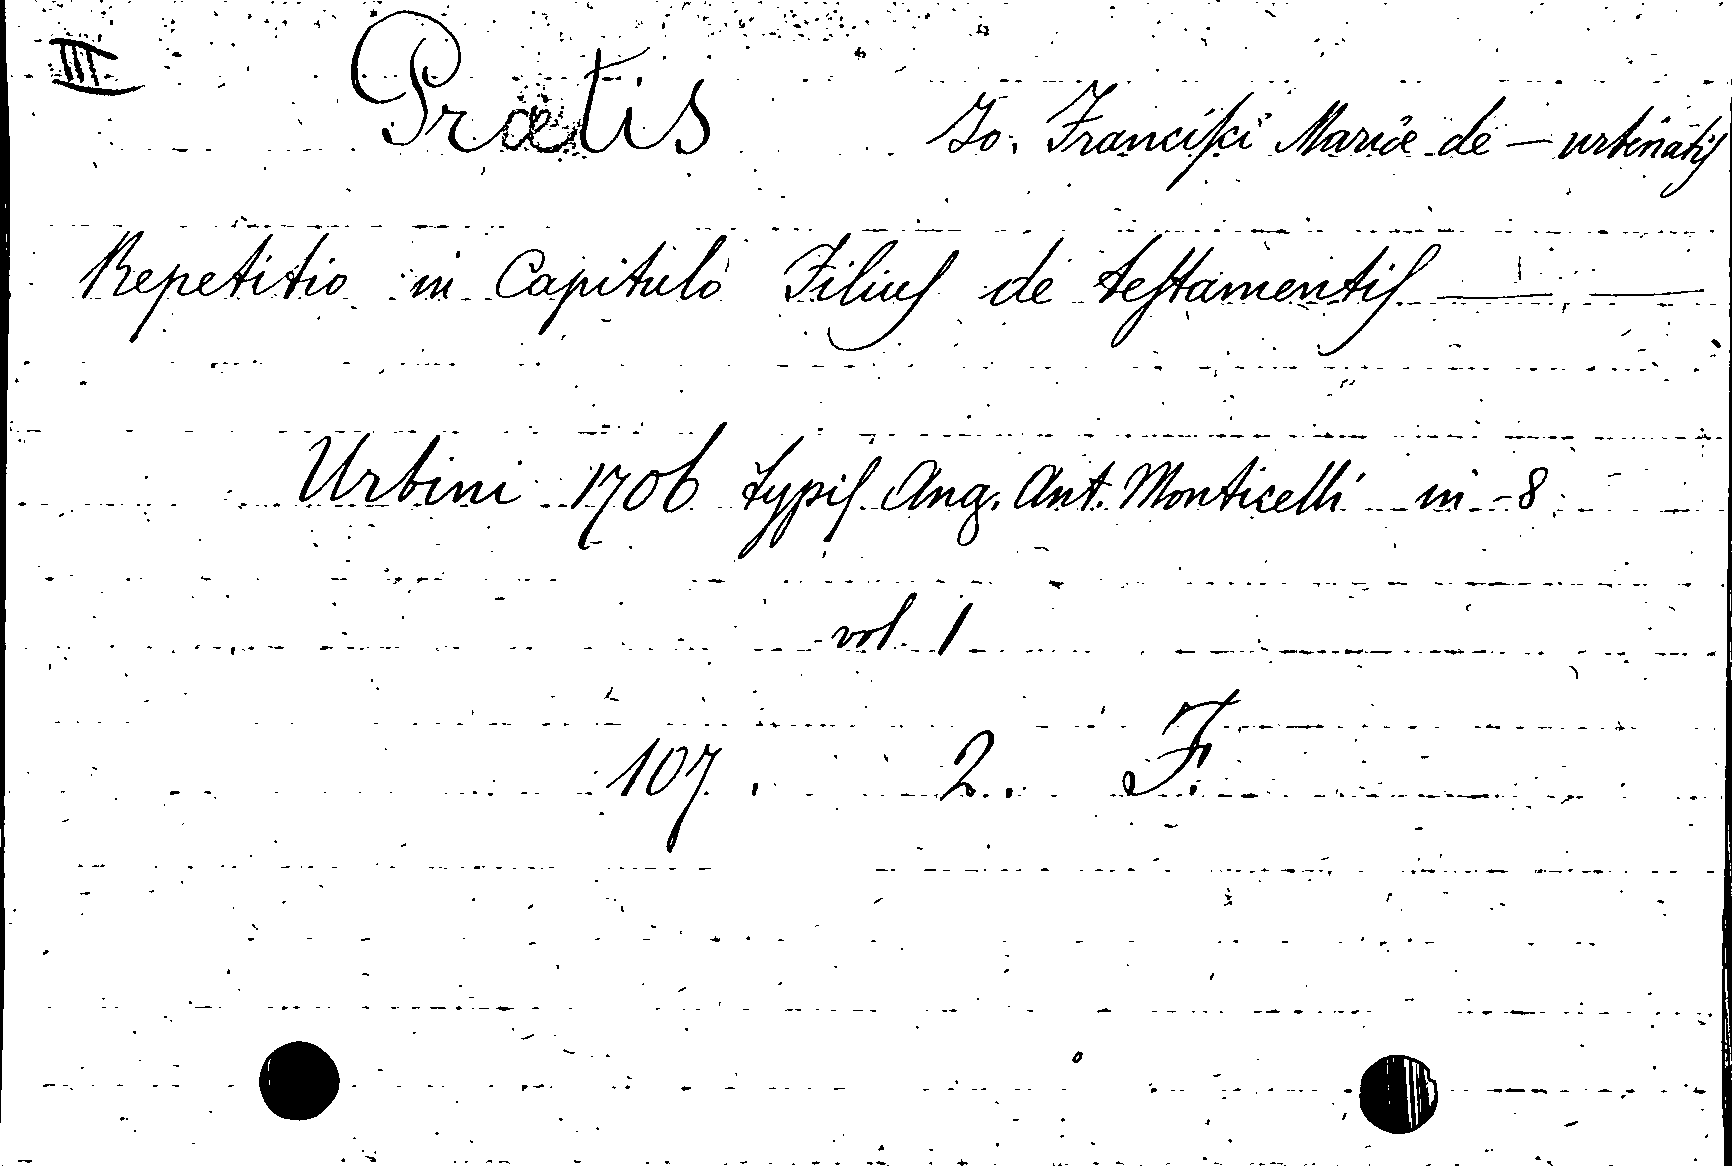 III Prætis Jo. Francisci Mariæ de — urbinatis
Repetitio in Capitulo Filius de testamentis — —
Urbini 1706 typis Ang. Ant. Monticelli in -8
vol 1
107. 2. F.